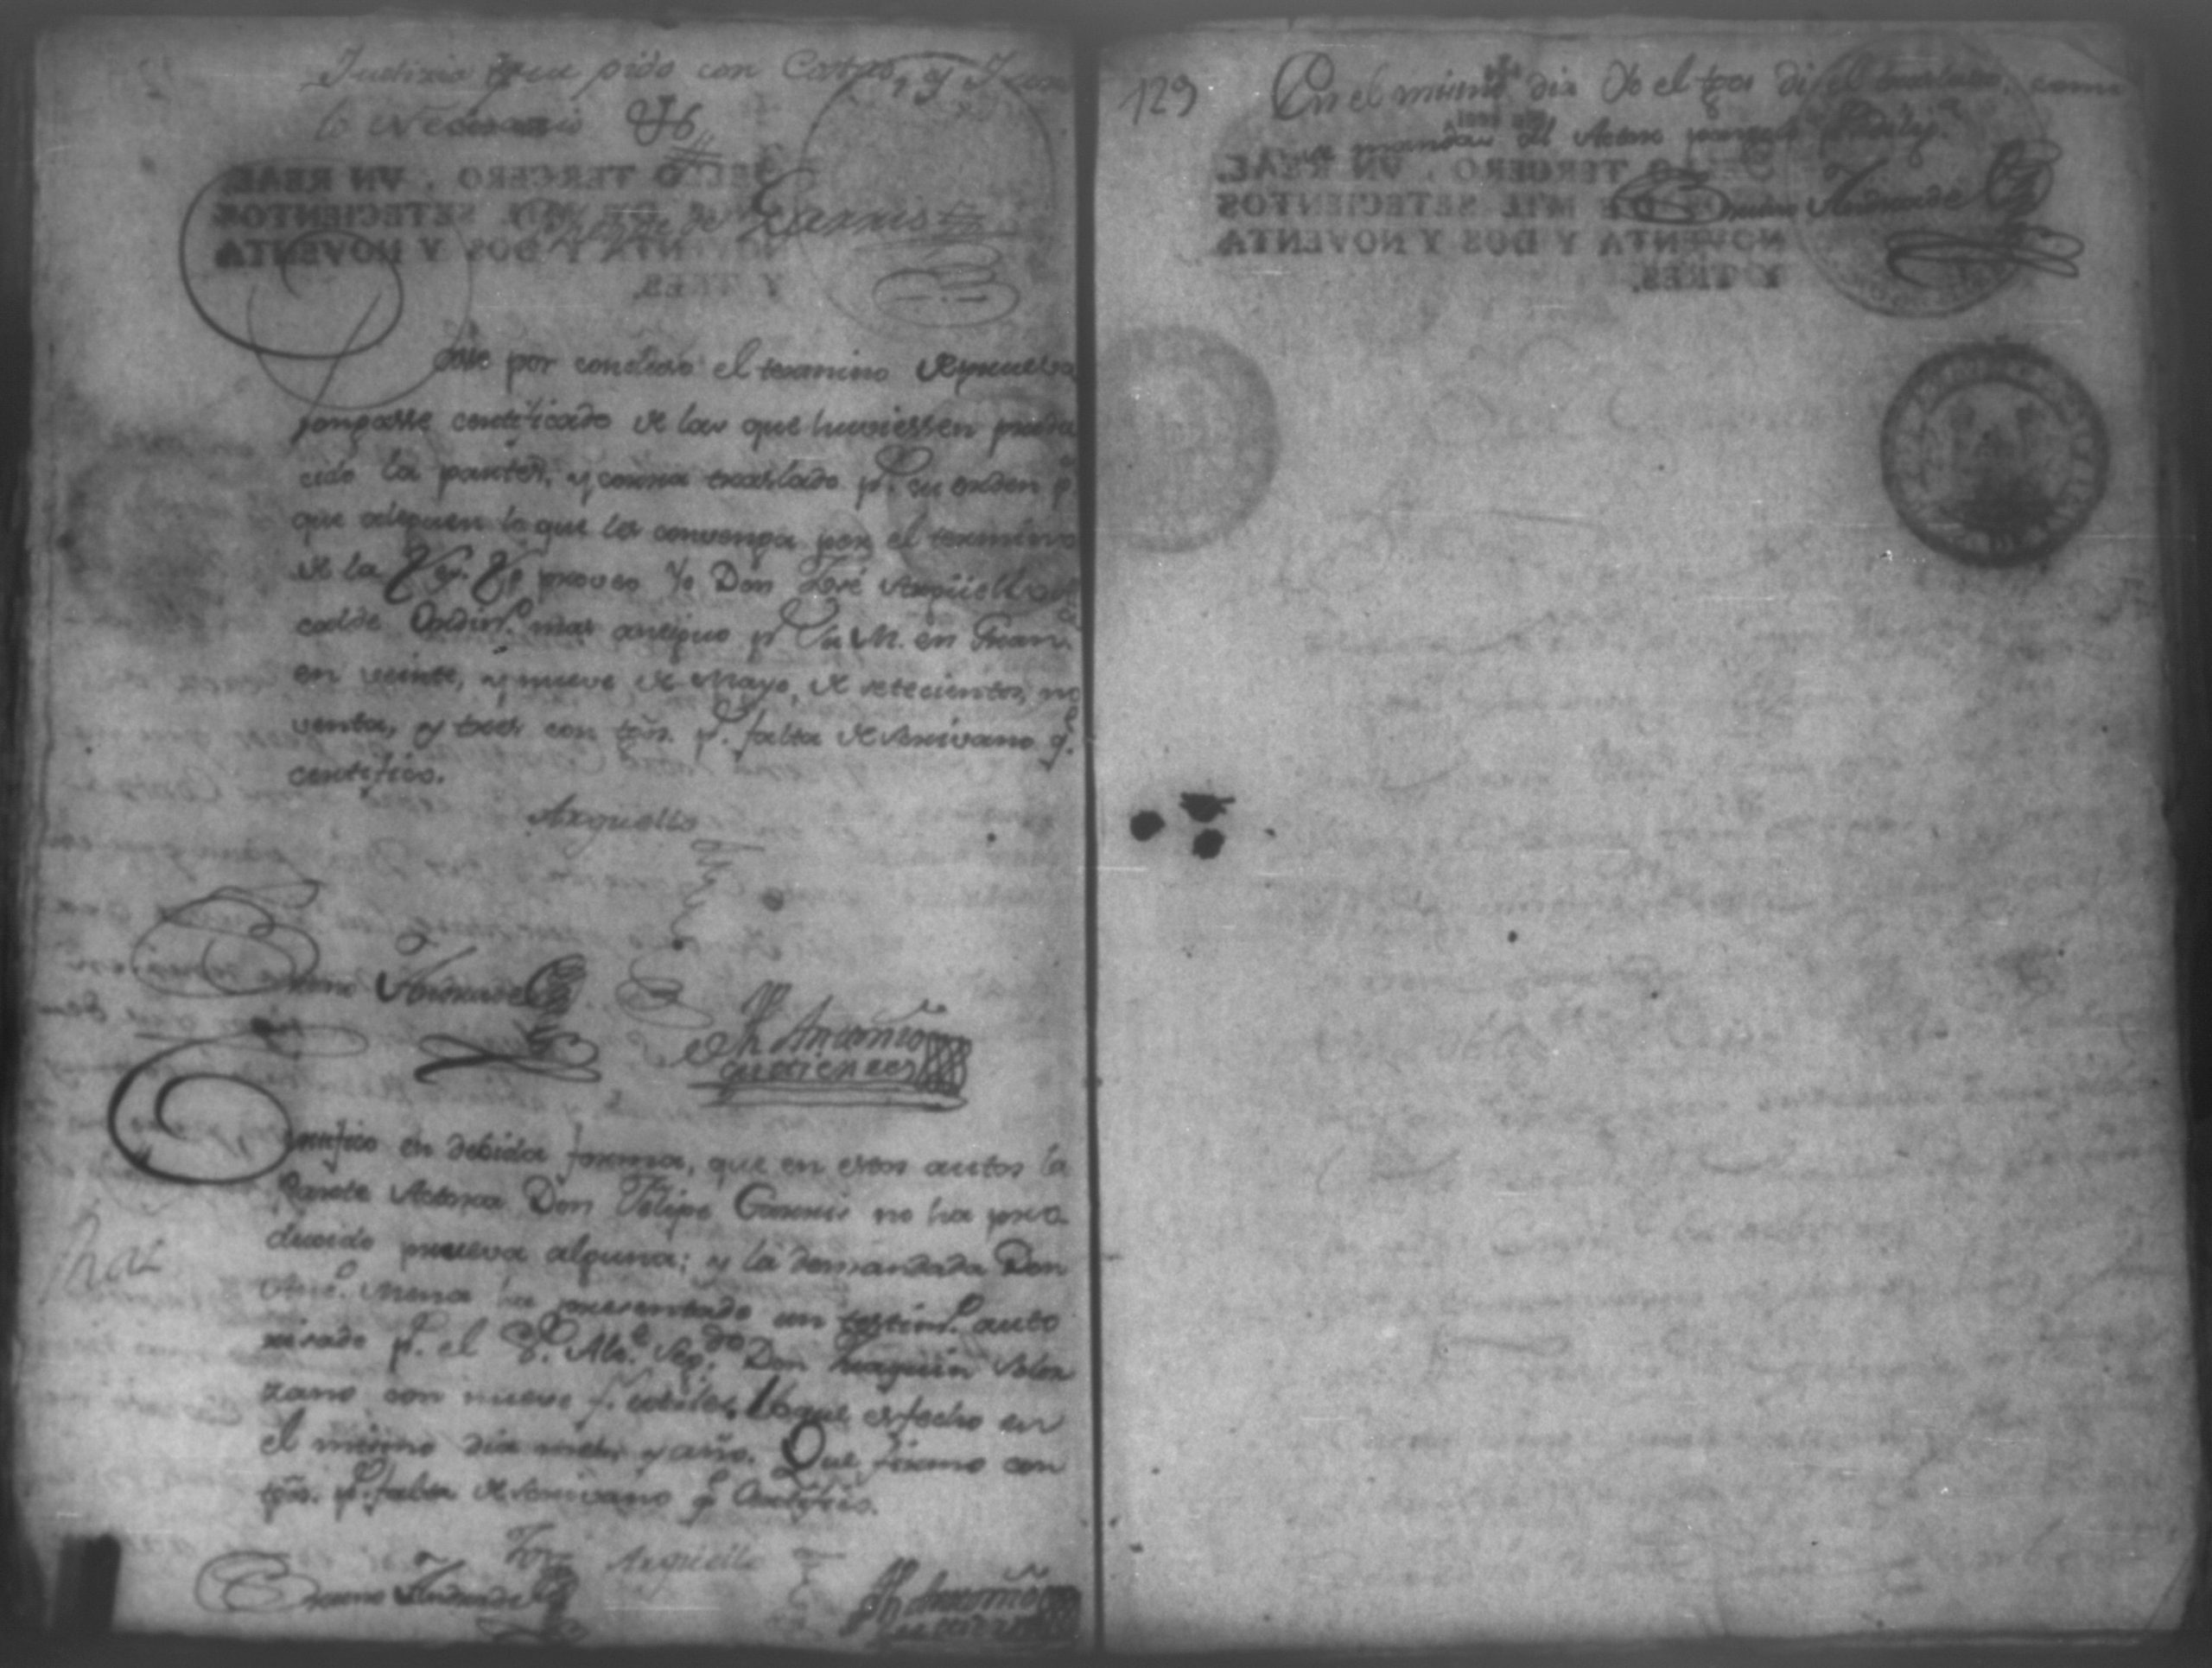 Justicia que pido con Costas, y Juro
lo Necesario
SELLO TERCERO, VN REAL,
AÑOS DE MIL SETECIENTOS
NOVENTA Y DOS Y NOVENTA
Y TRES.
Phelipe de Gannis
por concluso el termino de prueba
pongasse certificado de las que huviessen produ
cido la partes, y corra traslado pr. su orden pa.
que aleguen lo que les convenga por el termino
de la Ley. Lo proveo Yo Don José Argüello Al
calde Ordino. mas antiguo pr. Su M. en Gran.a
en veinte, y nueve de Mayo, de setecientos, no
venta, y tres con tgos. pr. falta de Escrivano qe.
certifico.
Arguello
Bruno Andrade
Jph Antonio
Gutierrez
Certifico en debida forma, que en estos autos la
Parte Actora Don Felipe Gannis no ha pro
ducido prueva alguna; y la demandada Don
Anto. Mena ha presentado un testimo. auto
risado pr. el Sr. Ale. Segdo. Don Joaquin Solor
zano con nueve f. utiles. Lo que es fecho en
el mismo dia mes, y año. Que firmo con
tgos. pr. falta de Escrivano qe. Certifico.
Arguello
Bruno Andrade
Jph Antonio
Gutierrez
129
En el mismo dia Yo el tgo. di el traslado, como
se manda al Actor
SELLO TERCERO, VN REAL,
AÑOS DE MIL SETECIENTOS
NOVENTA Y DOS Y NOVENTA
Y TRES.
Bruno Andrade